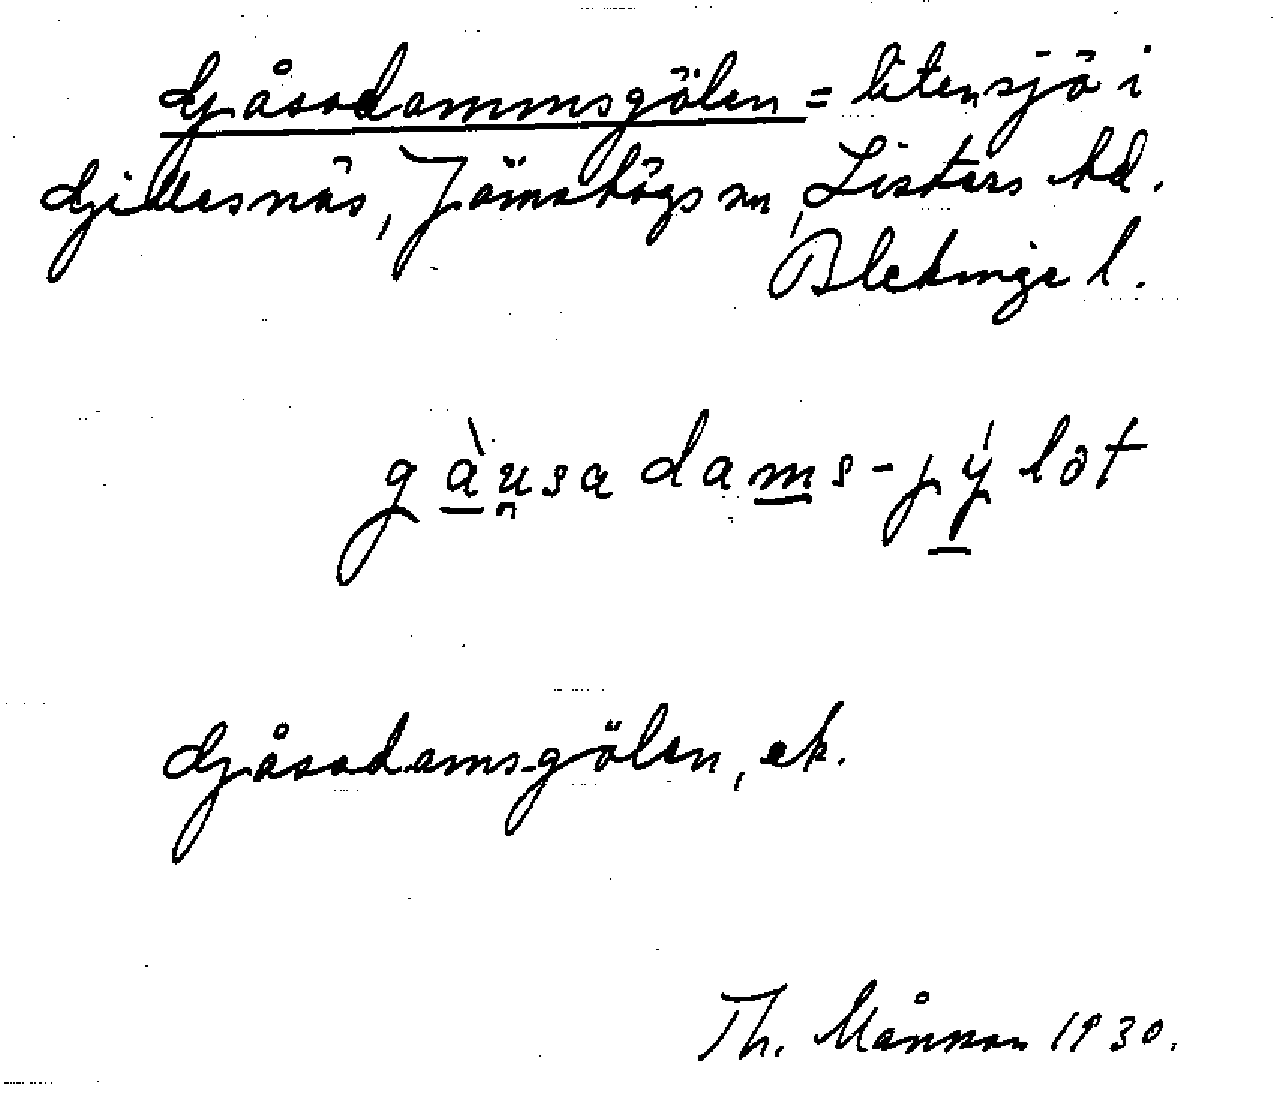 Gåsadammsgölen = liten sjö i
Gillesnäs, Jämshögs sn, Listers hd.
Blekinge l.
gàusadams-jýlət
Gåsadamsgölen, ek.
Th. Månsson 1930.